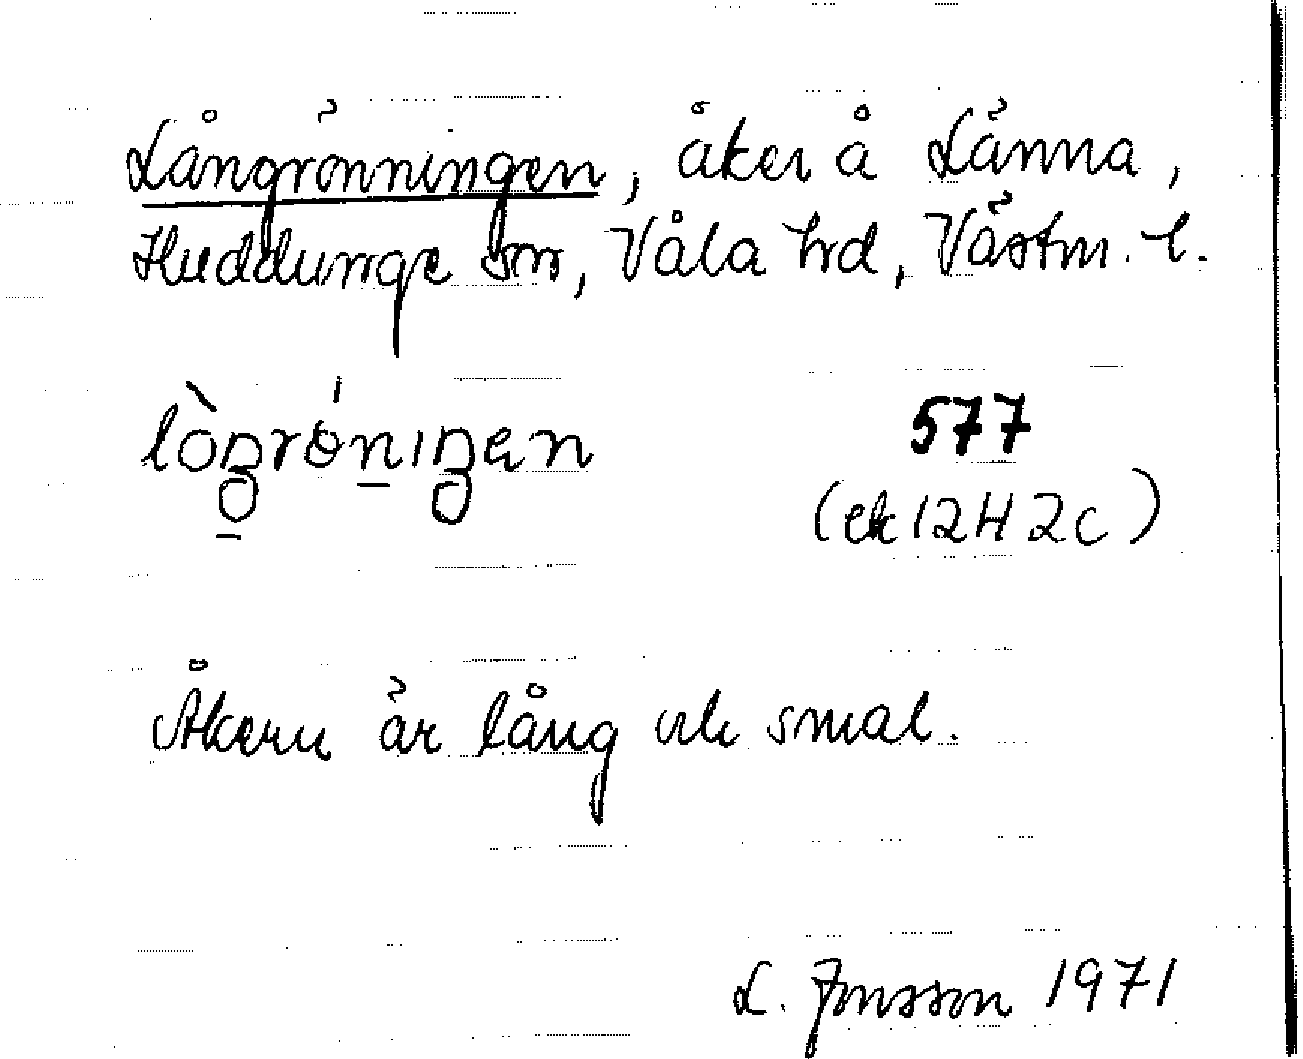 Långrönningen, åker å Länna,
Huddunge sn, Våla hd, Västm. l.
lò̀ŋrö́niŋen
577
(ek 12H 2c)
Åkern är lång och smal.
L. Jonsson 1971